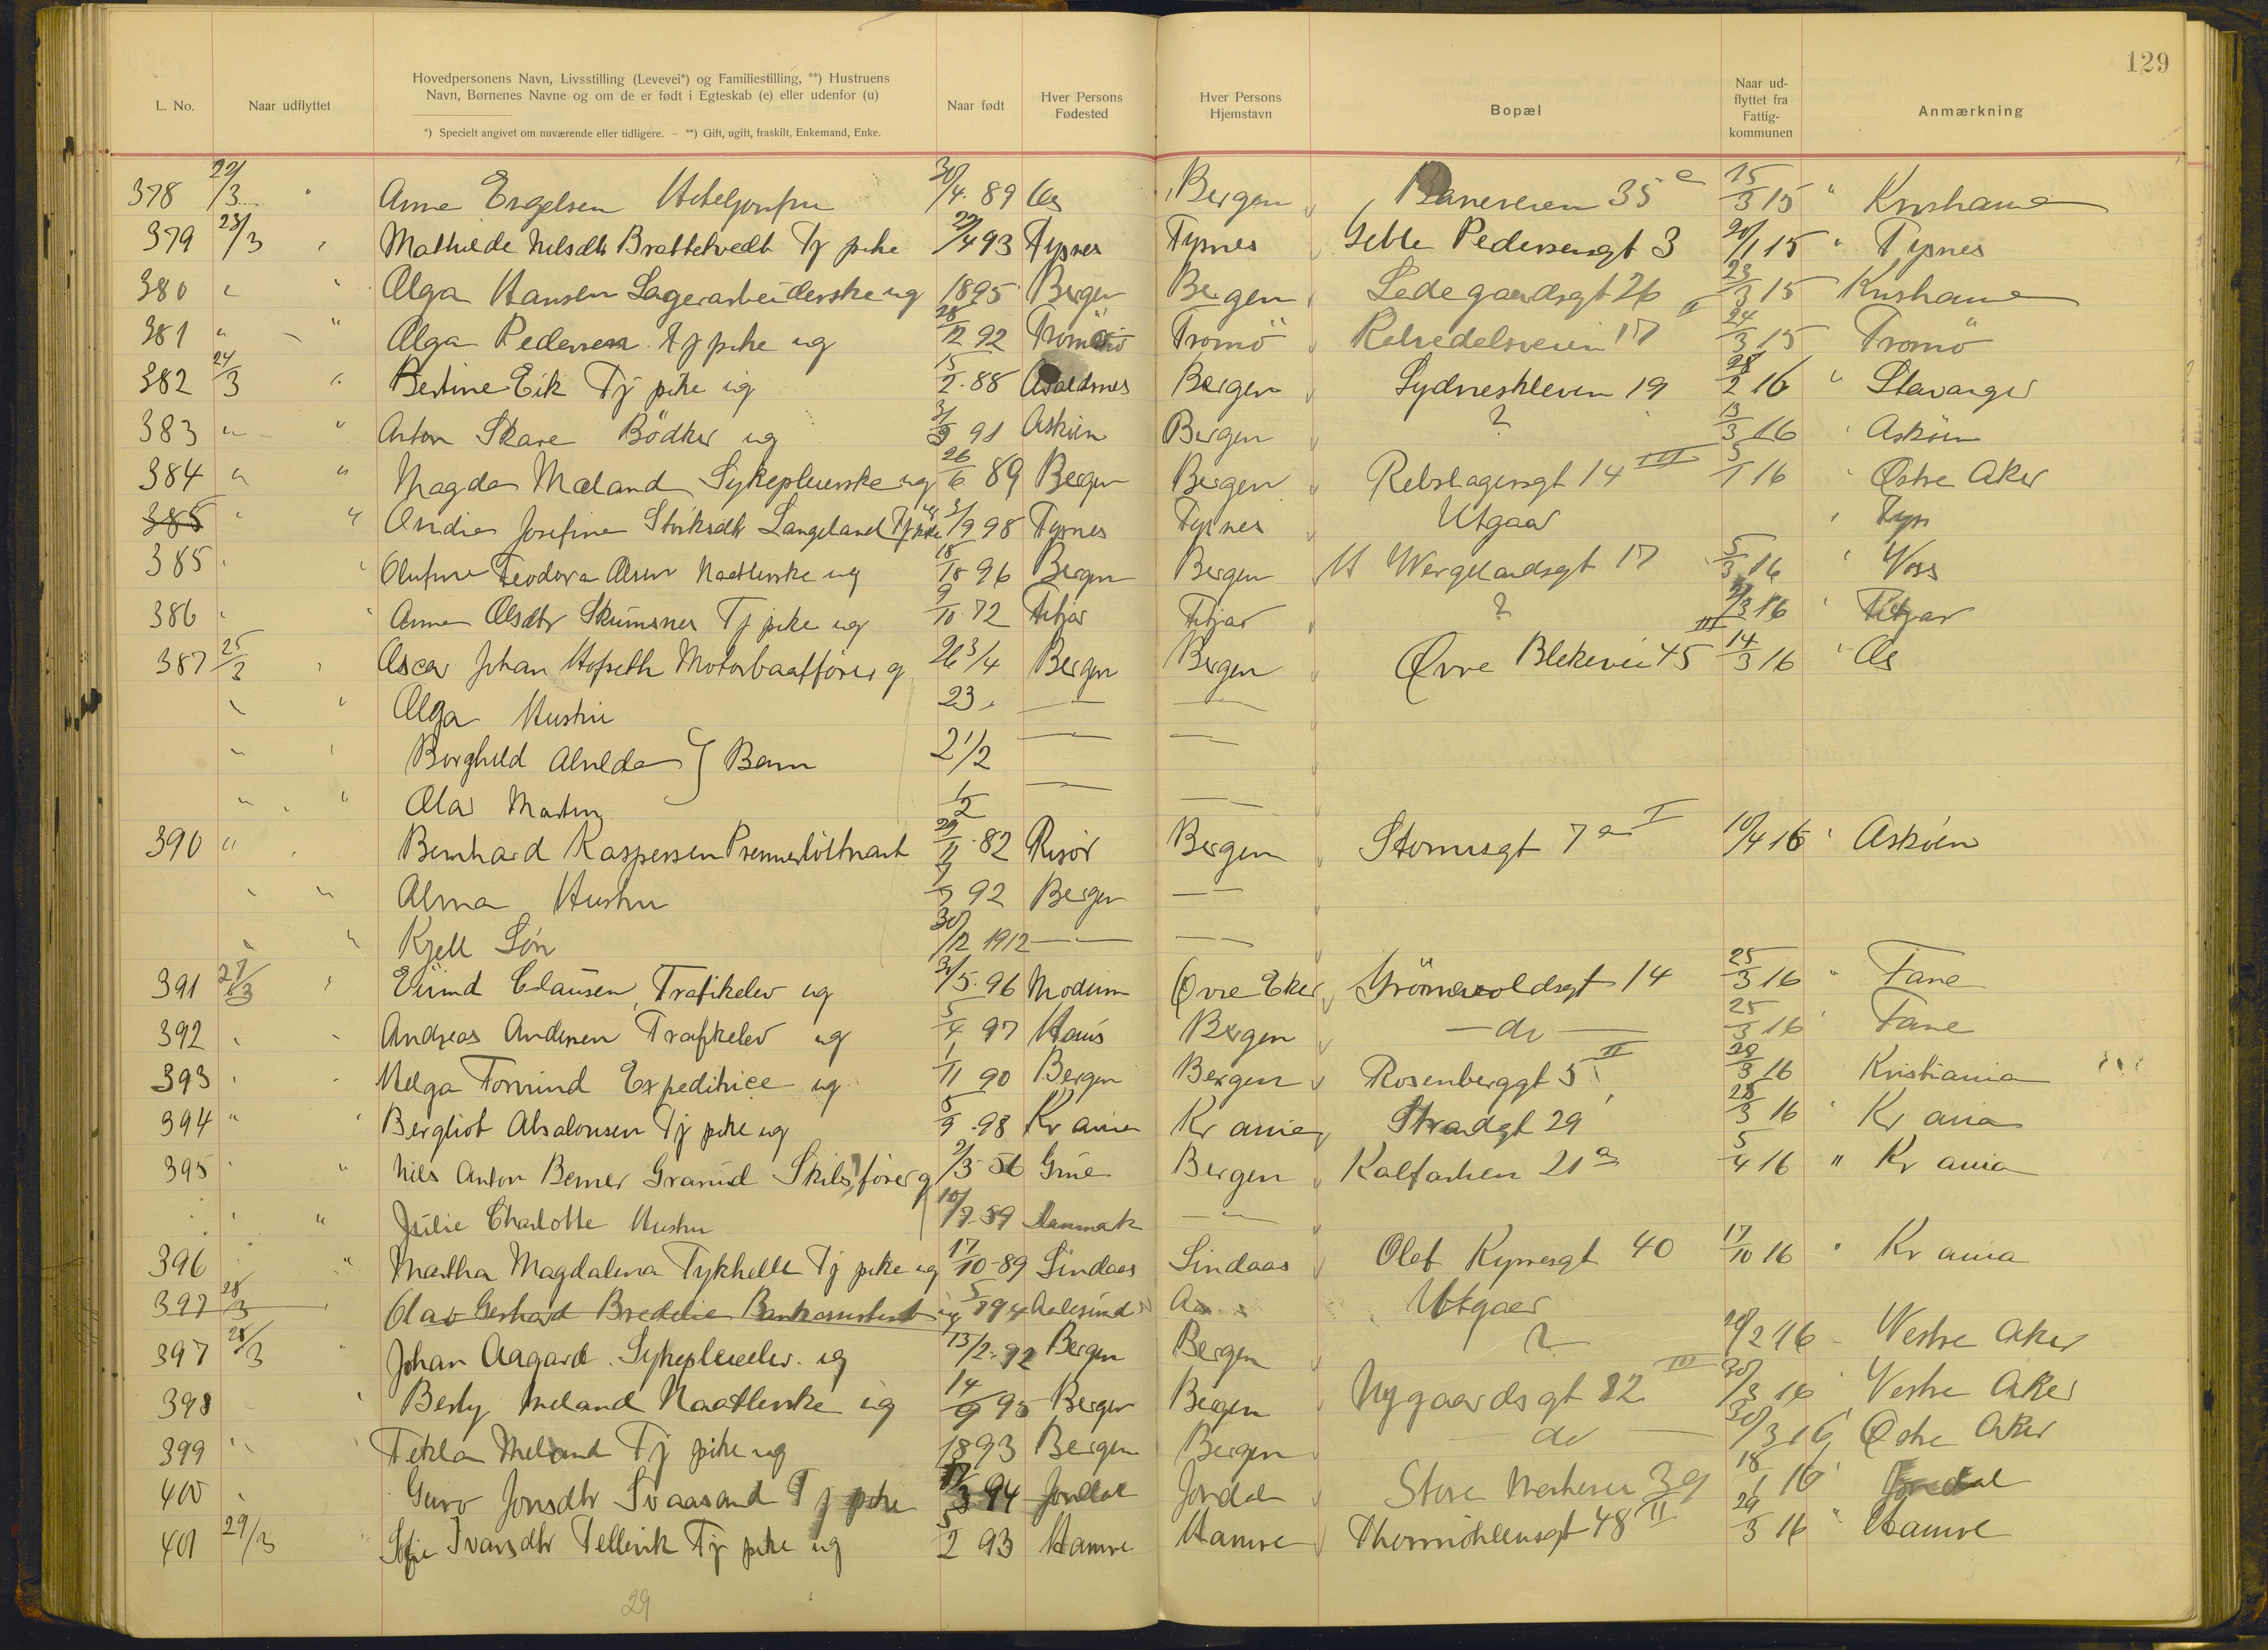 129
L. No. Naar udflyttet Hovedpersonens Navn, Livsstilling (Levevei*) og Familiestilling, **) Hustruens Navn, Børnenes Navne og om de er født i Egteskab (e) eller udenfor (u) Naar født Hver Persons Fødested Hver Persons Hjemstavn Bopæl Naar ud-flyttet fra Fattig-kommunen Anmærkning
*) Specielt angivet om nuværende eller tidligere. — **) Gift, ugift, fraskilt, Enkemand, Enke.
378 22/3 " Anna Engelsen Hoteljomfru 30/4 89 Os Bergen Baneveien 35 15/3 15 "
379 23/3 " Mathilde Nilsdtr Brattetvedt Tj pike 22/4 93 Tysnes Tysnes Geble Pedersensgt 3 20/1 15 " Tysnes
380 " " Olga Hansen Lagerarbeiderske ug 1895 Bergen Bergen Ladegaardsgt 26 23/3 15
381 " " Olga Pedersen Tj pike ug 28/12 92 Tromö Tromö 17 24/3 15 Tromö
382 24/3 " Bertine Eik Tj pike ug 15/2 88 Avaldsnes Bergen Sydneskleven 19 28/2 16 " Stavanger
383 " " Anton Skare Bödker ug 3/9 91 Asköen Bergen ? 13/3 16 " Asköen
384 " " Magda Mæland Sykepleierske ug 26/6 89 Bergen Bergen Rebslagergt 14 III 5/1 16 " Østre Aker
385 " " Josefine Langeland Tj pike ug 3/9 98 Tysnes Tysnes Utgaar " Tysn
385 " " Teodora Olsen ug 18 96 Bergen Bergen H Wergelandsgt 17 5/3 16 " Voss
386 " " Anna Olsdtr Skumsnes Tj pike ug 9/10 72 Fitjar Fitjar ? 3 16 " Fitjar
387 25/3 " Oscar Johan Hofseth Motorbaatförer g 26 3/4 Bergen Bergen Øvre Blekevei 45 III 14/3 16 " Os
" " Olga Hustru 23 — —
" " Borghild Alvilda } Barn 2 1/2 — —
" " Olav Martin 1/2 — —
390 " " Bernhard Kaspersen Premierlöitnant 29/11 82 Risör Bergen 7 a I 10/4 16 " Asköen
" " Alma Hustru 92 Bergen —
" " Kjell Sön 30/12 1912 — —
391 27/3 " Eivind Clausen Trafikelev ug 31/5 96 Modum Øvre Eker 14 25/3 16 " Fane
392 " " Andreas Andersen Trafikelev ug 5/4 97 Haus Bergen — do — 25/3 16 " Fane
393 " " Helga Expeditrice ug 1/11 90 Bergen Bergen Rosenberggt 5 II 28/3 16 Kristiania
394 " " Bergliot Absalonsen Tj pike ug 5/9 98 Kr ania Kr ania Strandgt 29 28/3 16 " Kr ania
395 " " Nils Anton Berner Granud Skibsförer g 2/3 56 Grue Bergen Kalfarlien 21 a 5/4 16 " Kr ania
" " Julie Charlotte Hustru 10/9 59 Danmark —
396 " " Martha Magdalena Tykhelle Tj pike ug 17/10-89 Lindaas Lindaas Olaf Kyrresgt 40 17/10 16 " Kr ania
397 28/3 " Olav Gerhard Bredelie Bankassistent ug 94 Aalesund Utgaar
397 28/3 " Johan Aagaard Sykepleieelev ug 13/2 92 Bergen Bergen ? 20/2 16 - Vestre Aker
398 " " Berly Meland ug 14/9 95 Bergen Bergen Nygaardsgt 82 III 30/3 16 " Vestre Aker
399 " " Tekla Meland Tj pike ug 1893 Bergen Bergen — do — 30/3 16 Østre Aker
400 " Guro Jonsdtr Svaasand Tj pike 17/3 94 Jondal Jondal Store 39 18/1 16 Jondal
401 29/3 " Sofie Ivarsdtr Tellevik Tj pike ug 5/2 93 Hamre Hamre Thormöhlensgt 48 II 29/3 16 " Hamre
29